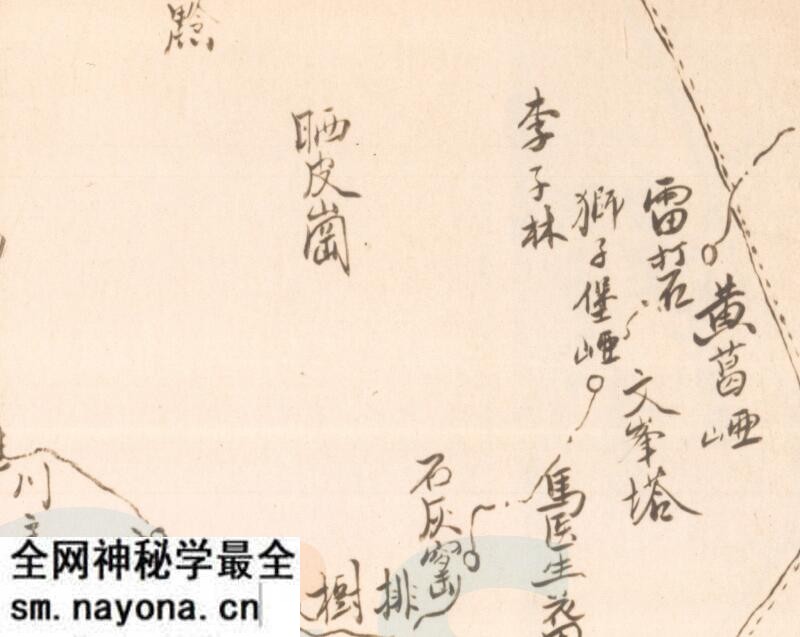 黔
晒皮崗
李子林
獅子堡埡
雷打石
黃葛埡
文峯塔
石灰窰
馬医生花
排樹
川主
全网神秘学最全
sm.nayona.cn